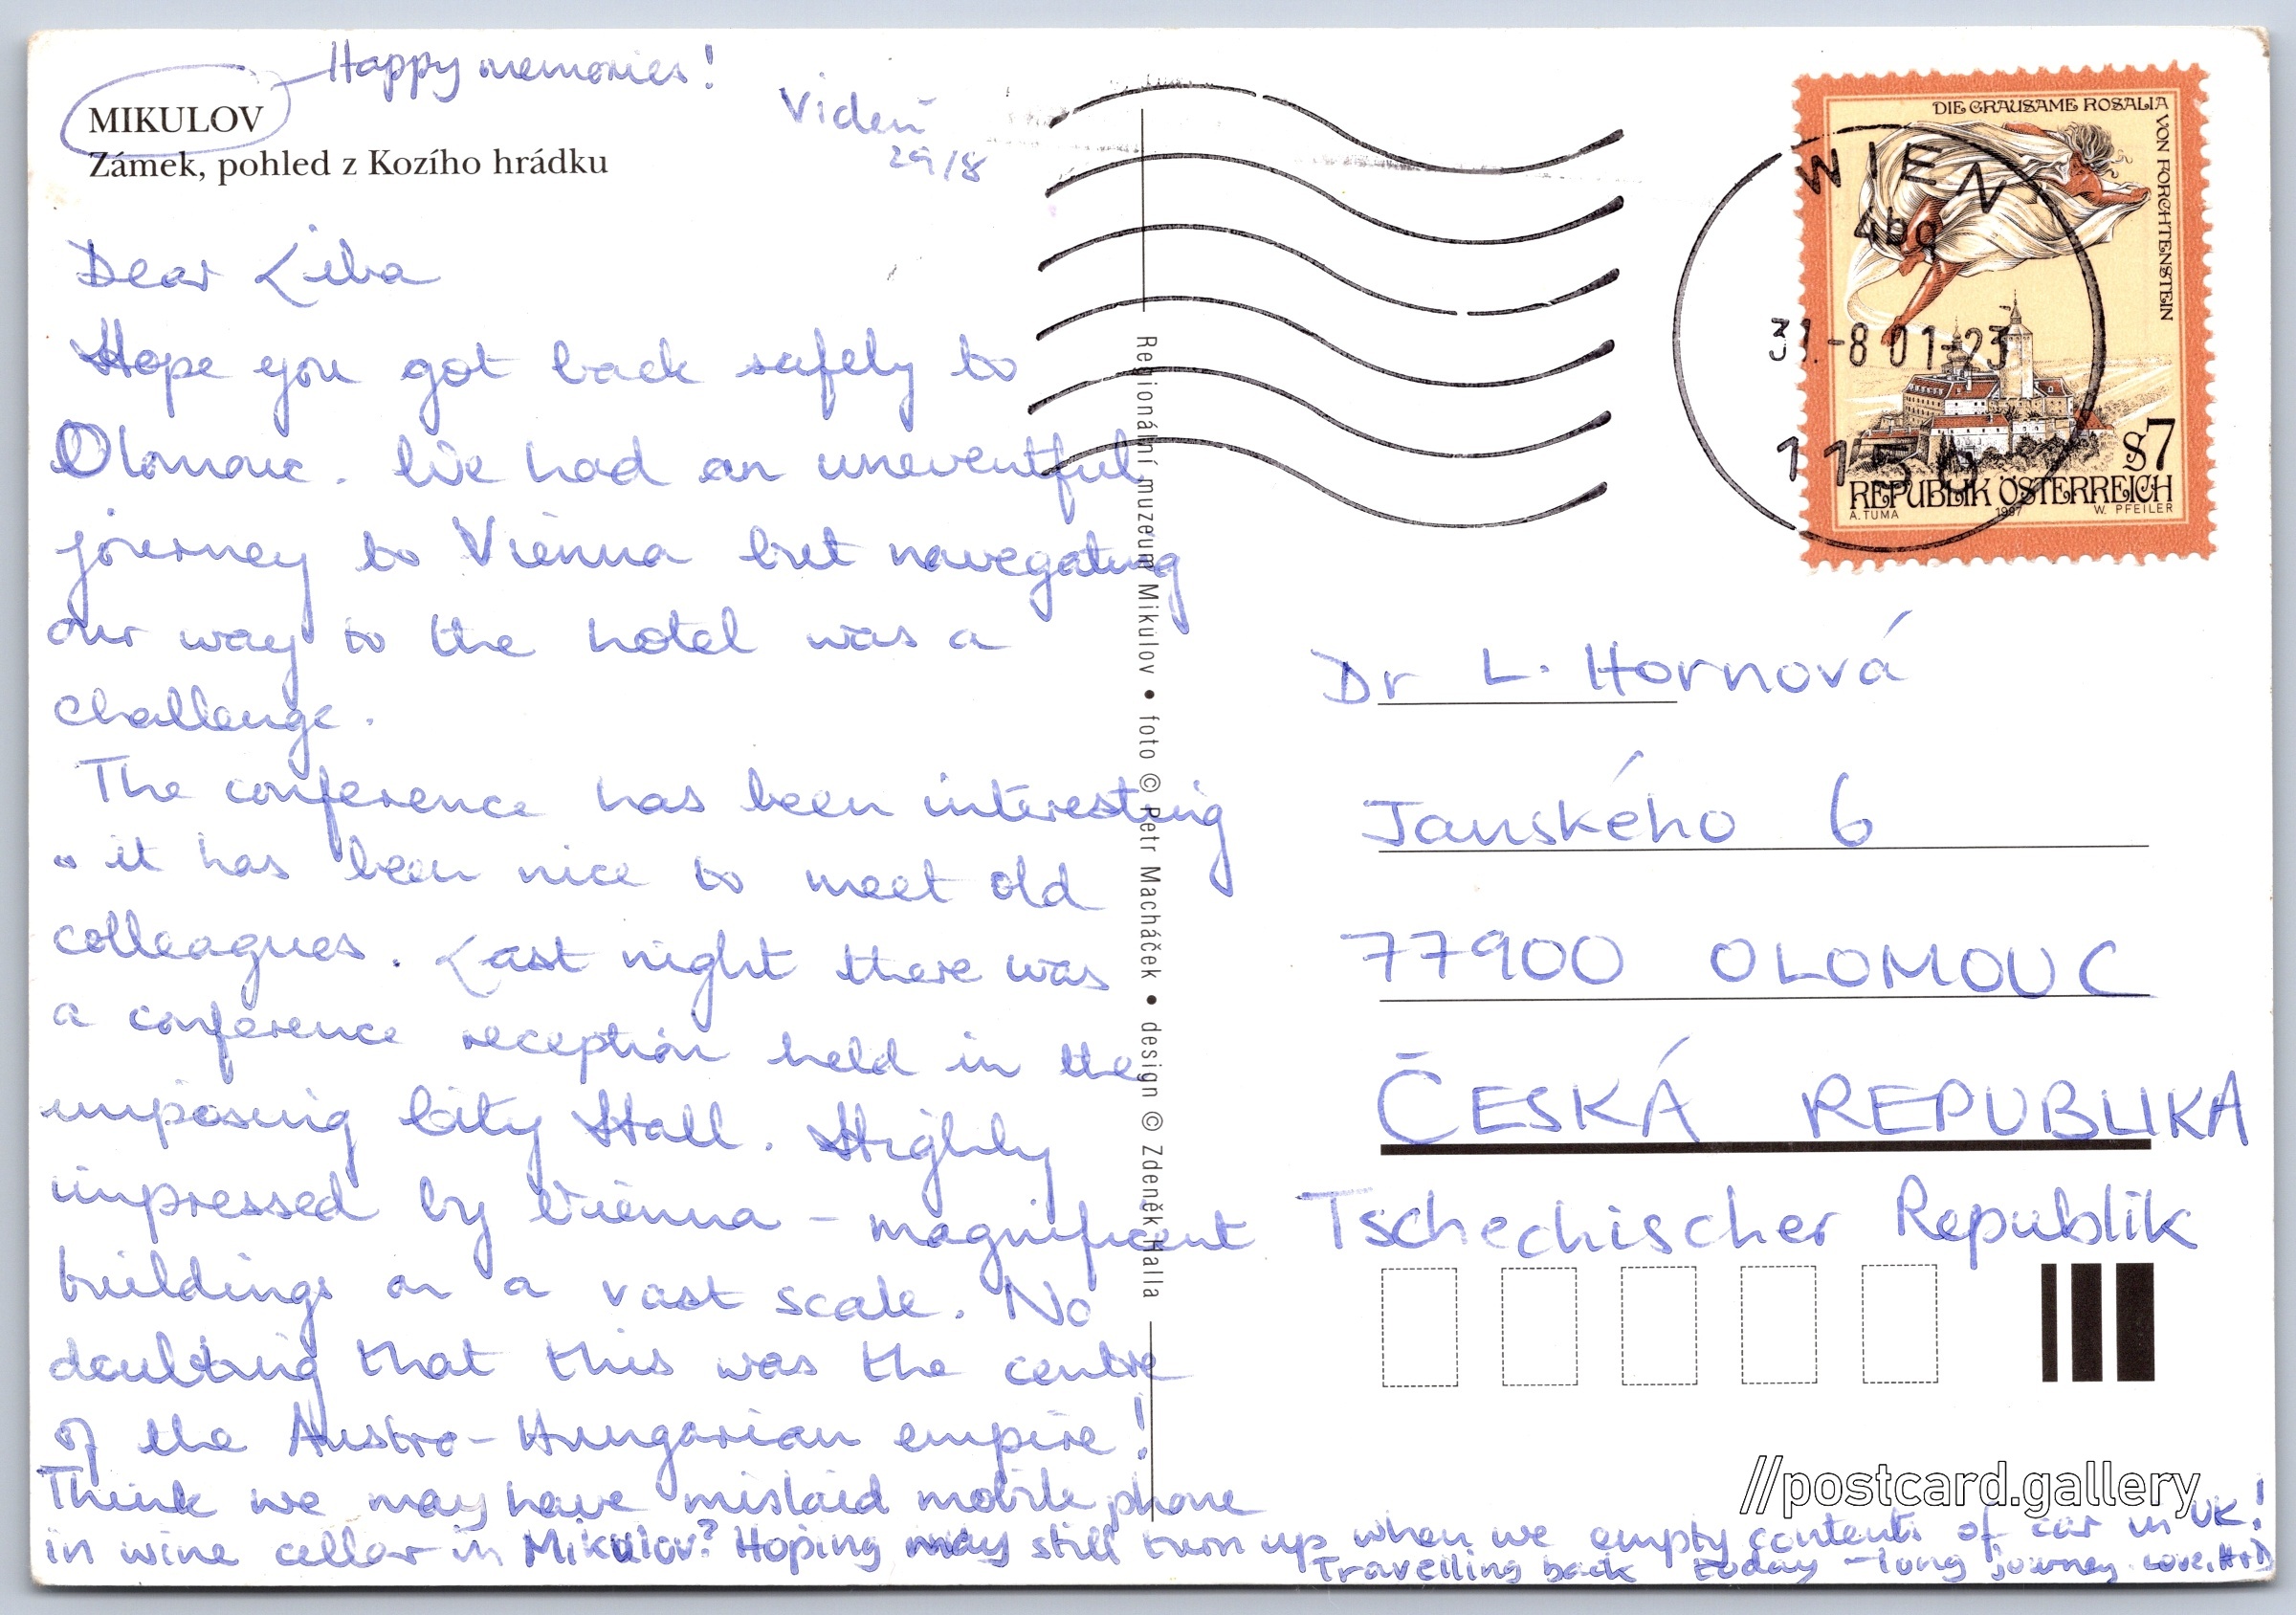 Happy memories!
MIKULOV
Zámek, pohled z Kozího hrádku
Videň
29/8
Dear Liba
Hope you got back safely to
Olomouc. We had an uneventful
journey to Vienna but navegating
our way to the hotel was a
challenge.
The conference has been interesting
& it has been nice to meet old
colleagues. Last night there was
a conference reception held in the
imposing City Hall. Highly
impressed by Vienna – magnificent
buildings on a vast scale. No
doubting that this was the centre
of the Austro-Hungarian empire!
Think we may have mislaid mobile phone
in wine cellar in Mikulov? Hoping may still turn up when we empty contents of car in UK!
Travelling back today – long journey. Love, H+D
Regionální muzeum Mikulov • foto © Petr Macháček • design © Zdeněk Halla
DIE GRAUSAME ROSALIA
VON FORCHTENSTEIN
WIEN
31.-8 01-23
1150
S7
REPUBLIK ÖSTERREICH
A. TUMA 1997 W. PFEILER
Dr L. Hornová
Janského 6
77900 OLOMOUC
ČESKÁ REPUBLIKA
Tschechischer Republik
//postcard.gallery